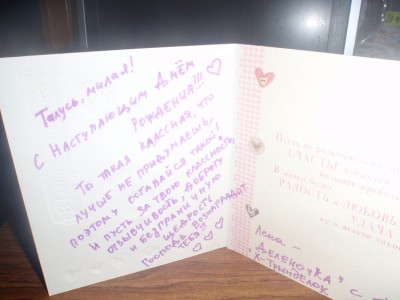 Талусь, милая!
С НАСТУПАЮЩИМ ДНЁМ
РОЖДЕНИЯ!!!
ТЫ ТАКАЯ КЛАССНАЯ, ЧТО
ЛУЧШЕ НЕ ПРИДУМАЕШЬ!
ПОЭТОМУ ОСТАВАЙСЯ ТАКОЙ
И ПУСТЬ ЗА ТВОЮ КЛАССНОСТЬ,
ОТЗЫВЧИВОСТЬ, ДОБРОТУ
И БЕЗГРАНИЧНУЮ
ЩЕДРОСТЬ
ГОСПОДЬ ВОЗНАГРАДИТ
ТЕБЯ!!!
Пусть
СЧАСТЬЕ
РАДОСТЬ и ЛЮБОВЬ
УДАЧА
"ДЕЛЕНОЧКА" С